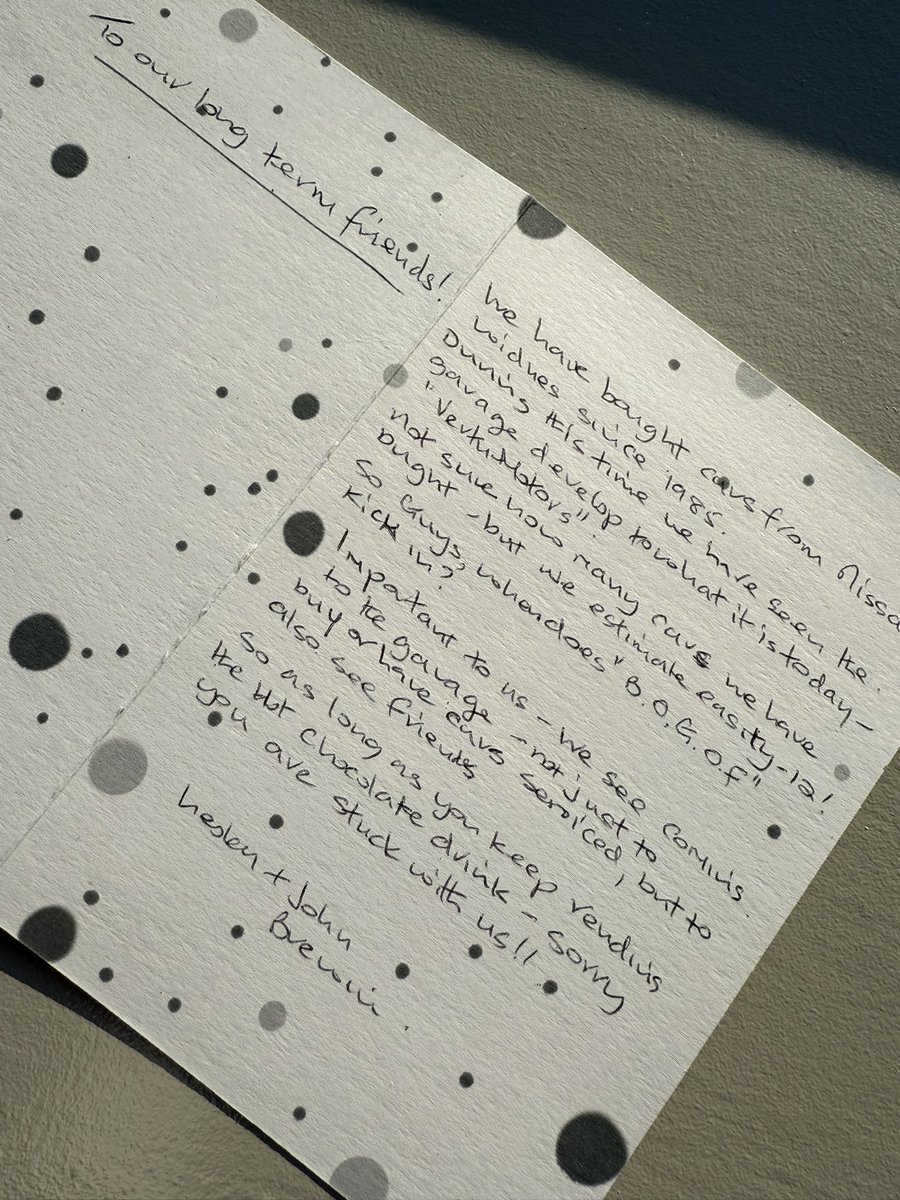 To our long term friends!
We have bought cars from Nissa
Widnes since 1985.
During this time we have seen the
garage develop to what it is today -
"Vertu Motors".
not sure how many cars we have
bught - but we estimate easity - 12!
So Guys, when does "B.O.G.Of"
kick in?
Important to us - we see coming
to the garage - not just to
buy or have cars serviced, but to
also see friends
So as long as you keep vending
the Hot Chocolate drink - sorry
you are stuck with us!!
+ John